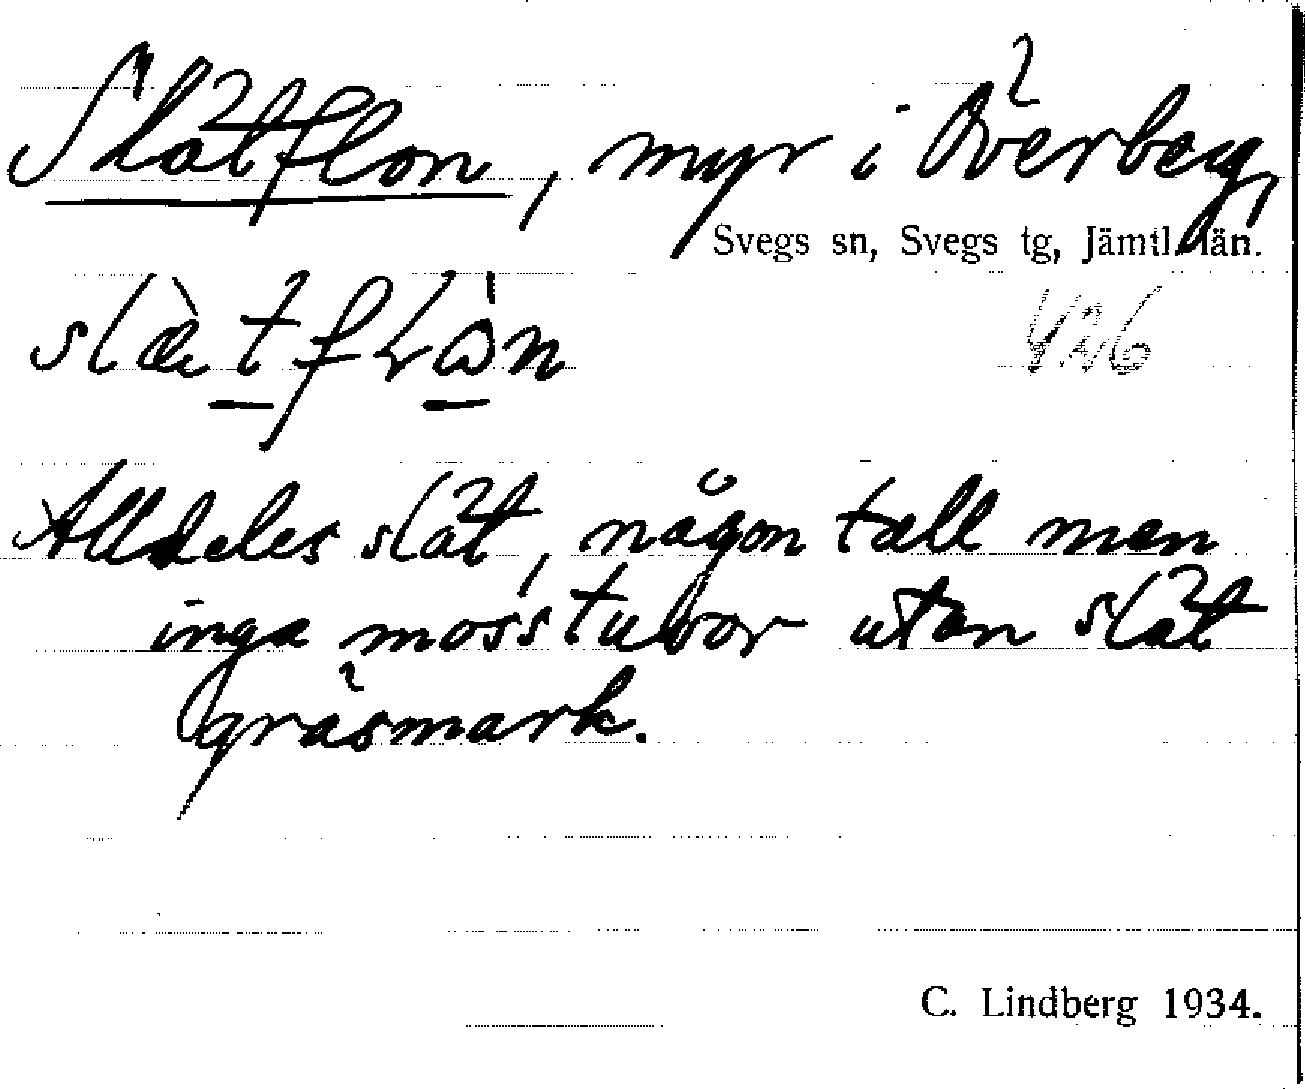 Slätflon, myr i Överberg,
Svegs sn, Svegs tg, Jämtl. län.
426
Alldeles slät, någon tall men
inga mosstuvor utan slät
gräsmark.
C. Lindberg 1934.